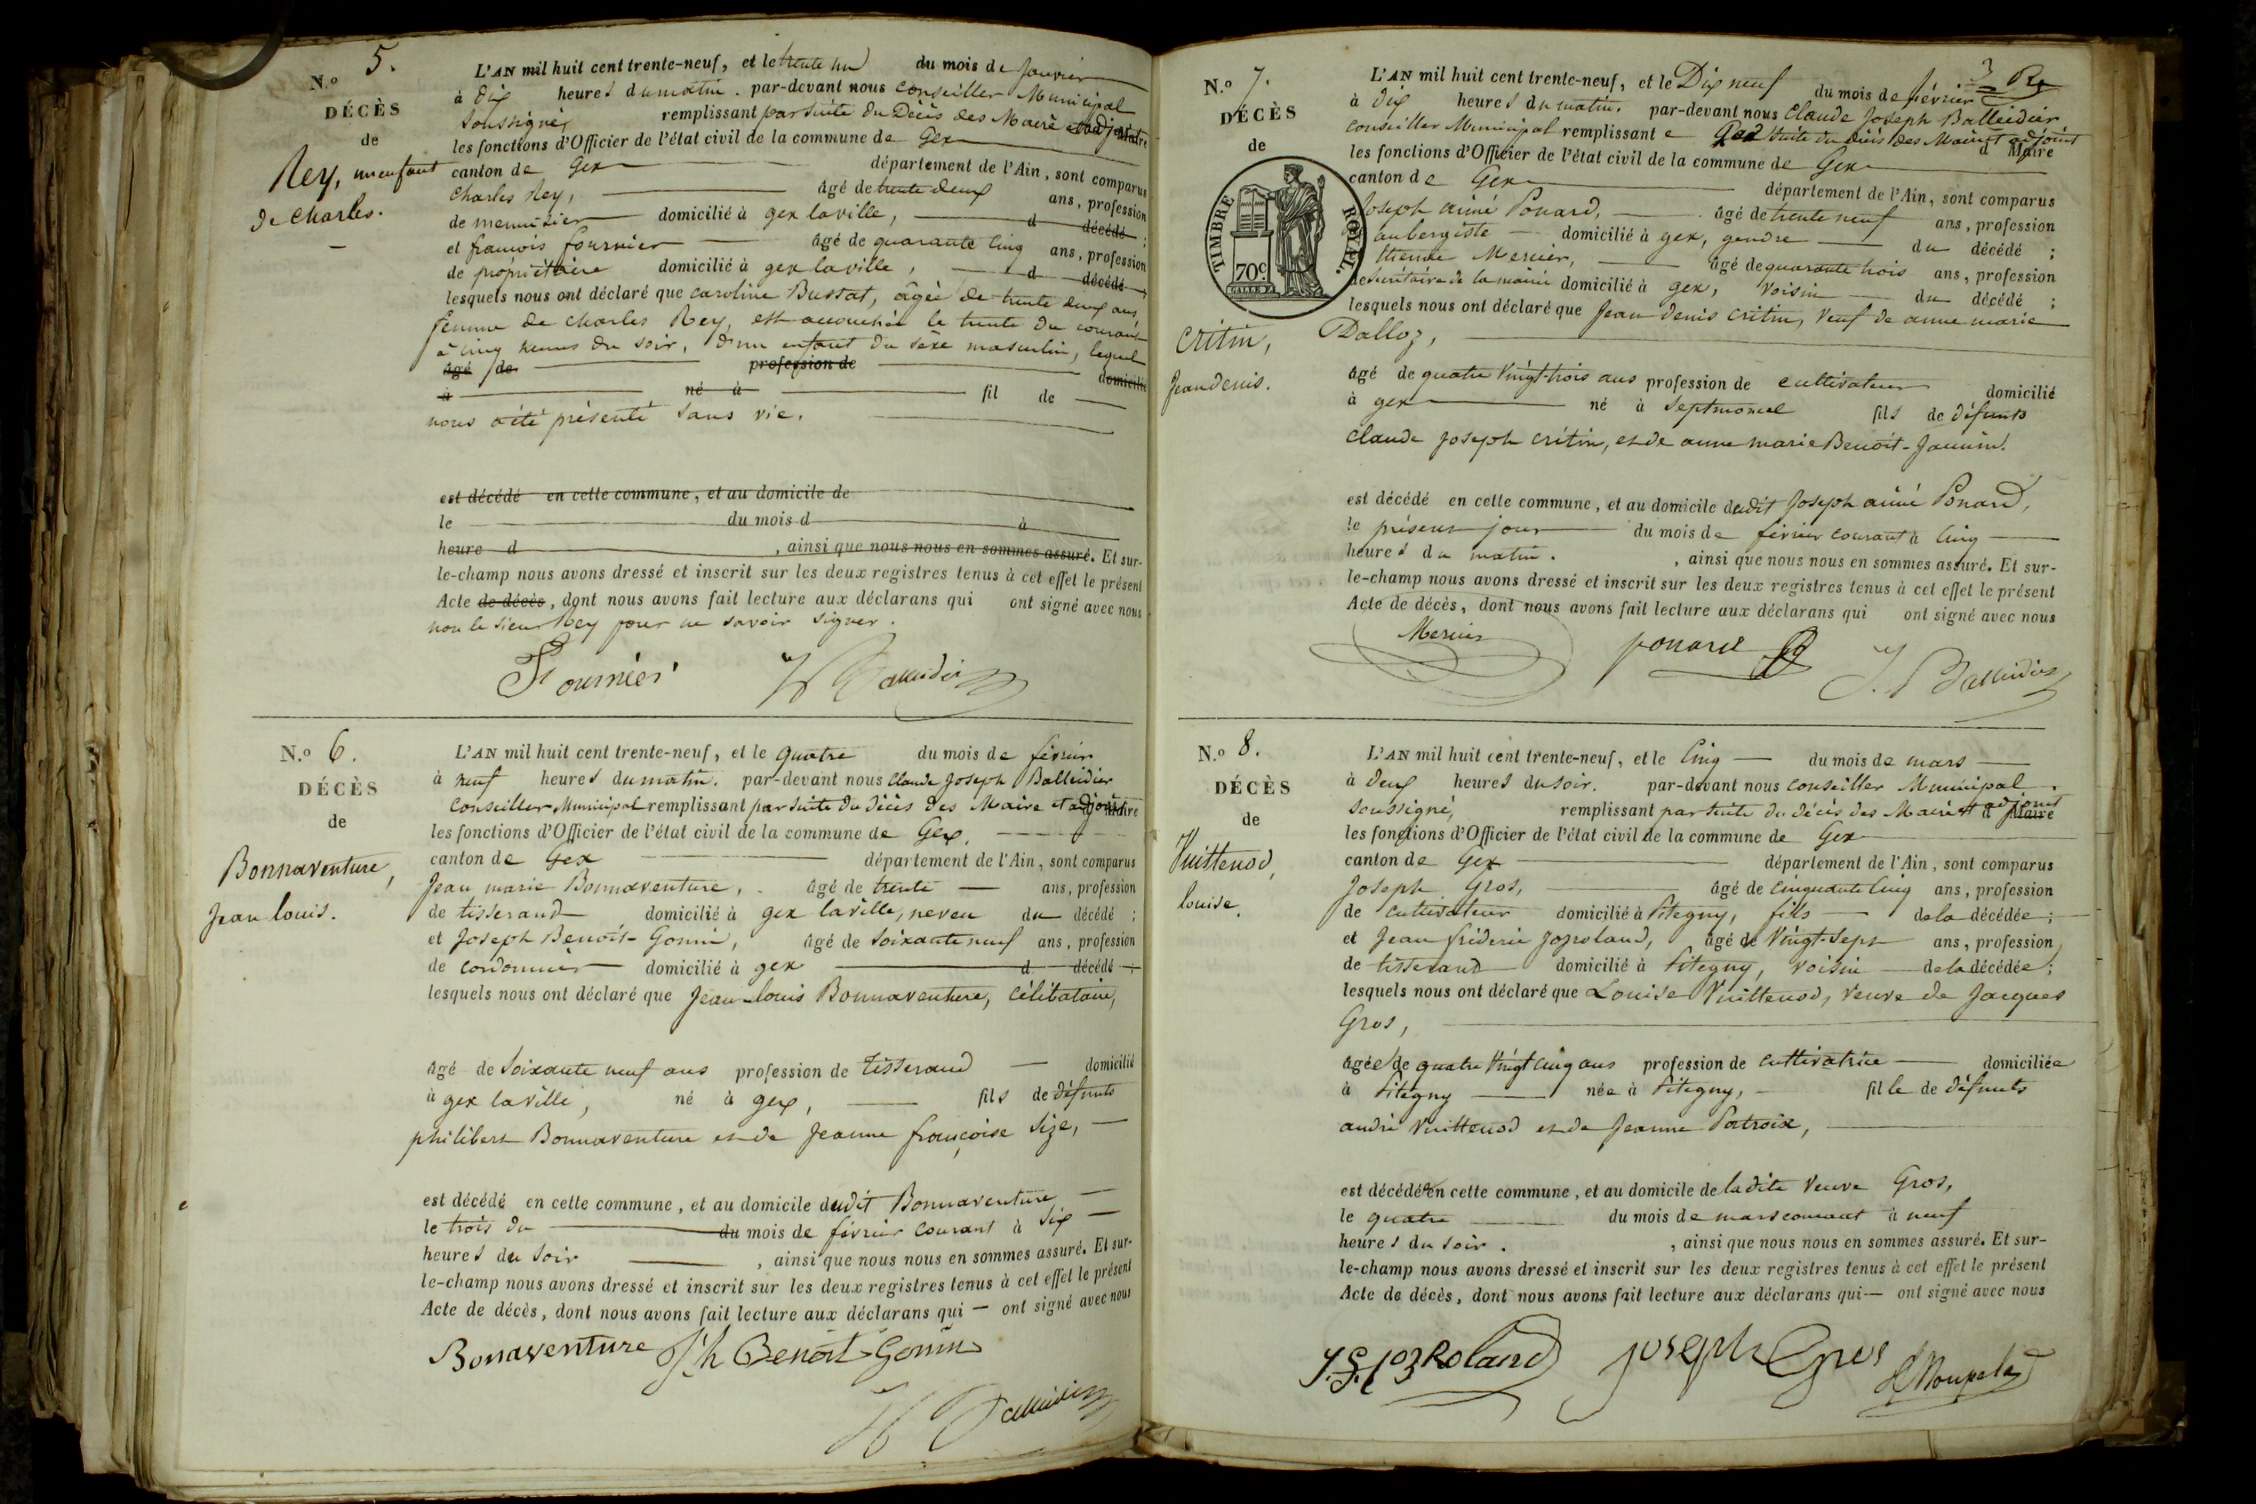 N.o 5.
DÉCÈS
de
Rey, un enfant
de Charles.
L'AN mil huit cent trente-neuf, et le trente un du mois de Janvier
à dix heures du matin. par-devant nous conseiller Municipal
soussigné, remplissant par suite du Décès des Maire et adjoint Maire
les fonctions d'Officier de l'état civil de la commune de Gex
canton de Gex département de l'Ain, sont comparus
Charles Rey, âgé de trente deux ans, profession
de menuisier domicilié à gex la ville, d décédé ;
et françois fournier âgé de quarante cinq ans, profession
de propriétaire domicilié à gex la ville, d décédé ;
lesquels nous ont déclaré que caroline Bussat, âgée de trente deux ans,
femme de Charles Rey, est accouchée le trente du courant
à cinq heures du soir, d'un enfant du sexe masculin, lequel
âgé de profession de domicilié
à né à fil de
nous a été présenté sans vie.
est décédé en cette commune, et au domicile de
le du mois d à
heure d , ainsi que nous nous en sommes assuré. Et sur-
le-champ nous avons dressé et inscrit sur les deux registres tenus à cet effet le présent
Acte de décès, dont nous avons fait lecture aux déclarans qui ont signé avec nous
non le sieur Rey pour ne savoir signer.
Fournier Balleidier
N.o 6.
DÉCÈS
de
Bonnaventure,
Jean louis.
L'AN mil huit cent trente-neuf, et le quatre du mois de février
à neuf heures du matin. par-devant nous Claude Joseph Balleidier
Conseiller Municipal remplissant par suite du décès des Maire et adjoint Maire
les fonctions d'Officier de l'état civil de la commune de Gex,
canton de Gex département de l'Ain, sont comparus
Jean marie Bonnaventure, âgé de trente ans, profession
de tisserand domicilié à gex la ville, neveu du décédé ;
et Joseph Benoit-Gonin, âgé de soixante neuf ans, profession
de cordonnier domicilié à gex d décédé ;
lesquels nous ont déclaré que Jean Louis Bonnaventure, célibataire,
âgé de soixante neuf ans profession de tisserand domicilié
à gex la ville, né à gex, fils de défunts
philibert Bonnaventure et de Jeanne françoise Size,
est décédé en cette commune, et au domicile dudit Bonnaventure
le trois du du mois de février courant à six
heures du soir , ainsi que nous nous en sommes assuré. Et sur-
le-champ nous avons dressé et inscrit sur les deux registres tenus à cet effet le présent
Acte de décès, dont nous avons fait lecture aux déclarans qui ont signé avec nous
Bonaventure Jh Benoit Gonin
Balleidier
3 Rx
N.o 7.
DÉCÈS
de
TIMBRE ROYAL.
70c
Critin,
Jean denis.
L'AN mil huit cent trente-neuf, et le Dix neuf du mois de février
à dix heures du matin. par-devant nous Claude Joseph Balleidier
Conseiller Municipal remplissant suite du décès des Maire et adjoint d Maire
les fonctions d'Officier de l'état civil de la commune de Gex
canton de Gex département de l'Ain, sont comparus
Joseph aimé Ponard, âgé de trente neuf ans, profession
aubergiste domicilié à gex, gendre du décédé ;
Etienne Mercier, âgé de quarante trois ans, profession
de Secrétaire de la mairie domicilié à gex, voisin du décédé ;
lesquels nous ont déclaré que Jean Denis Critin, veuf de anne marie
Dalloz,
âgé de quatre vingt-trois ans profession de cultivateur domicilié
à gex né à Septmoncel fils de défunts
Claude Joseph Critin, et de anne marie Benoit-Jannin.
est décédé en cette commune, et au domicile dudit Joseph aimé Ponard,
le présent jour du mois de février courant à cinq
heures du matin. , ainsi que nous nous en sommes assuré. Et sur-
le-champ nous avons dressé et inscrit sur les deux registres tenus à cet effet le présent
Acte de décès, dont nous avons fait lecture aux déclarans qui ont signé avec nous
Mercier ponard J. Balleidier
N.o 8.
DÉCÈS
de
Vuittenod,
louise.
L'AN mil huit cent trente-neuf, et le cinq du mois de mars
à deux heures du soir. par-devant nous conseiller Municipal
soussigné, remplissant par suite du décès des Maire et adjoint d Maire
les fonctions d'Officier de l'état civil de la commune de Gex
canton de Gex département de l'Ain, sont comparus
Joseph Gros, âgé de cinquante cinq ans, profession
de cultivateur domicilié à Pitegny, fils de la décédée ;
et Jean fréderic Jozroland, âgé de vingt-sept ans, profession
de tisserand domicilié à Pitegny, voisin de la décédée ;
lesquels nous ont déclaré que Louise Vuittenod, veuve de Jacques
Gros,
âgée de quatre vingt cinq ans profession de cultivatrice domiciliée
à Pitegny née à Pitegny, fille de défunts
andré Vuittenod et de Jeanne Patroix,
est décédée en cette commune, et au domicile de ladite veuve Gros,
le quatre du mois de mars courant à neuf
heures du soir. , ainsi que nous nous en sommes assuré. Et sur-
le-champ nous avons dressé et inscrit sur les deux registres tenus à cet effet le présent
Acte de décès, dont nous avons fait lecture aux déclarans qui ont signé avec nous
J. F. Joz Roland joseph Gros